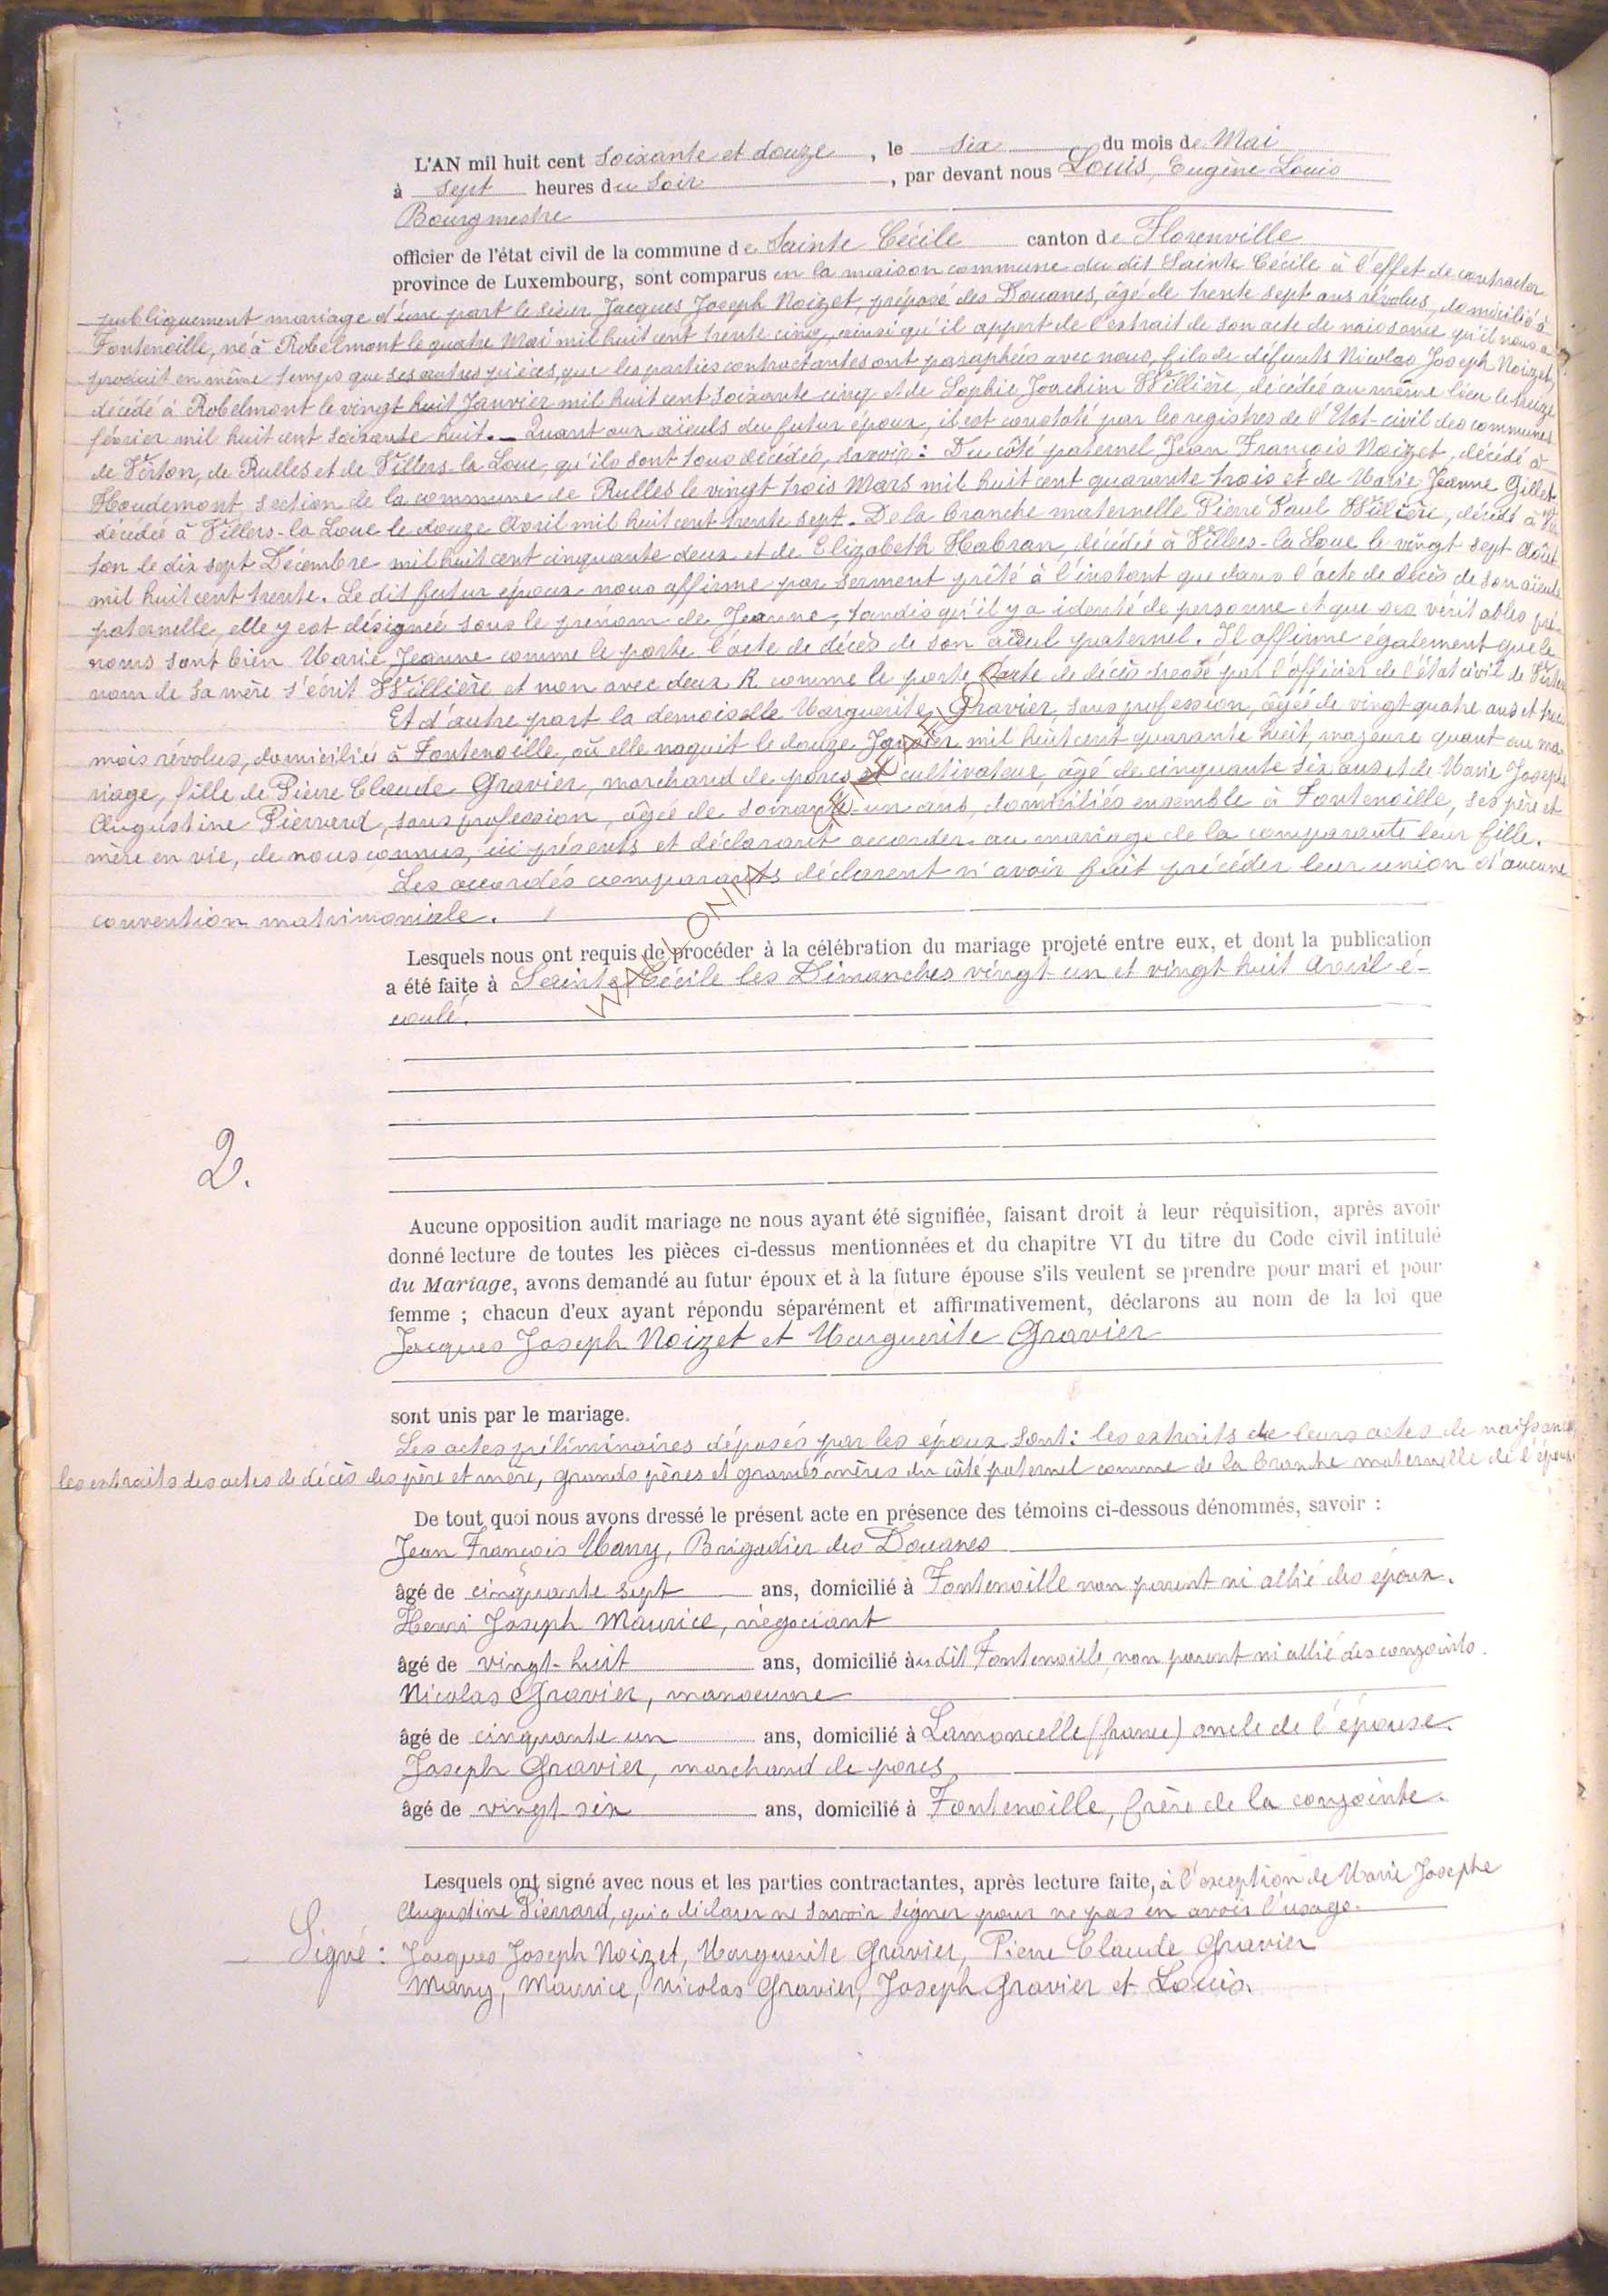 L'AN mil huit cent soixante et douze, le six du mois de Mai
à sept heures du soir, par devant nous Louis, Eugène Louis
Bourgmestre
officier de l'état civil de la commune de Sainte Cécile canton de Florenville
province de Luxembourg, sont comparus en la maison commune du dit Sainte Cécile à l'effet de contracter
publiquement mariage d'une part le sieur Jacques Joseph Noizet, préposé des Douanes, âgé de trente sept ans révolus, domicilié à
Fontenoille, né à Robelmont le quatre Mai mil huit cent trente cinq, ainsi qu'il appert de l'extrait de son acte de naissance qu'il nous a
produit en même temps que ses autres pièces, que les parties contractantes ont paraphées avec nous, fils de défunts Nicolas Joseph Noizet,
décédé à Robelmont le vingt huit Janvier mil huit cent soixante cinq et de Sophie Joachim Willière, décédée au même lieu le treize
février mil huit cent soixante huit. _ Quant aux aïeuls du futur époux, il est constaté par les registres de l'Etat-civil des communes
de Virton, de Rulles et de Villers-la Loue, qu'ils sont tous décédés, savoir : Du côté paternel Jean François Noizet, décédé à
Houdemont, section de la commune de Rulles le vingt trois Mars mil huit cent quarante trois et de Marie Jeanne Gillet,
décédée à Villers-la Loue le douze Avril mil huit cent trente sept. De la branche maternelle Pierre Paul Willière, décédé à Vir-
ton le dix sept Décembre mil huit cent cinquante deux et de Elizabeth Habran, décédée à Villers-la Loue le vingt sept Août
mil huit cent trente. Le dit futur époux nous affirme par serment prêté à l'instant que dans l'acte de décès de son aïeule
paternelle, elle y est désignée sous le prénom de Jeanne, tandis qu'il y a identé de personne et que ses véritables pré-
noms sont bien Marie Jeanne comme le porte l'acte de décès de son aïeul paternel. Il affirme également que le
nom de sa mère s'écrit Willière et non avec deux R comme le porte l'acte de décès dressé par l'officier de l'état civil de Virton
Et d'autre part la demoiselle Marguerite Gravier, sans profession, âgée de vingt quatre ans et trois
mois révolus, domiciliée à Fontenoille, où elle naquit le douze Janvier mil huit cent quarante huit, majeure quant au ma-
riage, fille de Pierre Claude Gravier, marchand de porcs et cultivateur, âgé de cinquante six ans et de Marie Josephe
Augustine Pierrard, sans profession, âgée de soixante-un ans, domiciliés ensemble à Fontenoille, ses père et
mère en vie, de nous connus, ici présents et déclarant accorder au mariage de la comparante leur fille.
Les accordés comparants déclarent n'avoir fait précéder leur union d'aucune
convention matrimoniale.
Lesquels nous ont requis de procéder à la célébration du mariage projeté entre eux, et dont la publication
a été faite à Sainte Cécile les Dimanches vingt-un et vingt huit Avril é-
coulé.
2.
Aucune opposition audit mariage ne nous ayant été signifiée, faisant droit à leur réquisition, après avoir
donné lecture de toutes les pièces ci-dessus mentionnées et du chapitre VI du titre du Code civil intitulé
du Mariage, avons demandé au futur époux et à la future épouse s'ils veulent se prendre pour mari et pour
femme ; chacun d'eux ayant répondu séparément et affirmativement, déclarons au nom de la loi que
Jacques Joseph Noizet et Marguerite Gravier
sont unis par le mariage.
Les actes préliminaires déposés par les époux sont : les extraits de leurs actes de naissance
les extraits des actes de décès des père et mère, grands pères et grands mères du côté paternel comme de la branche maternelle de l'époux.
De tout quoi nous avons dressé le présent acte en présence des témoins ci-dessous dénommés, savoir :
Jean François Many, Brigadier des Douanes
âgé de cinquante sept ans, domicilié à Fontenoille non parent ni allié des époux.
Henri Joseph Maurice, négociant
âgé de vingt-huit ans, domicilié àudit Fontenoille, non parent ni allié des conjoints.
Nicolas Gravier, manoeuvre
âgé de cinquante un ans, domicilié à Lamoncelle (france) oncle de l'épouse.
Joseph Gravier, marchand de porcs
âgé de vingt six ans, domicilié à Fontenoille, frère de la conjointe.
Lesquels ont signé avec nous et les parties contractantes, après lecture faite, à l'exception de Marie Josephe
Augustine Pierrard, qui a déclarer ne savoir signer pour ne pas en avoir l'usage.
Signé : Jacques Joseph Noizet, Marguerite Gravier, Pierre Claude Gravier
Many, Maurice, Nicolas Gravier, Joseph Gravier et Louis.